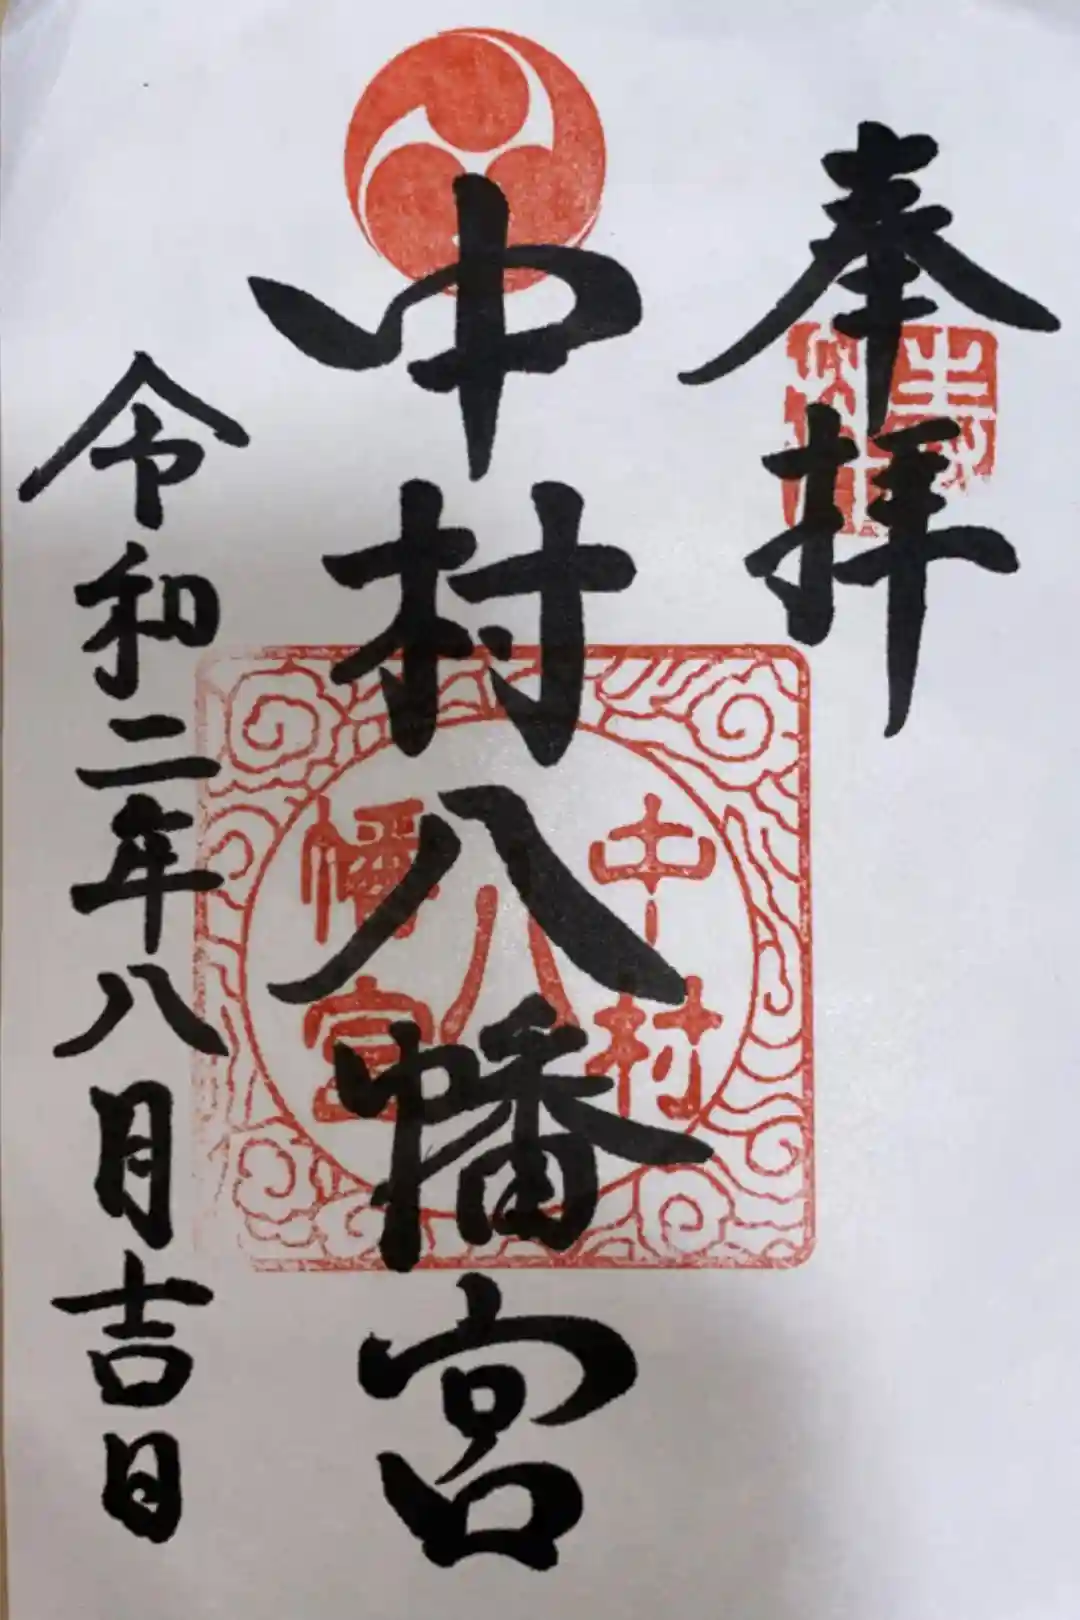 奉拝
中村八幡宮
令和二年八月吉日
中村
八
幡宮